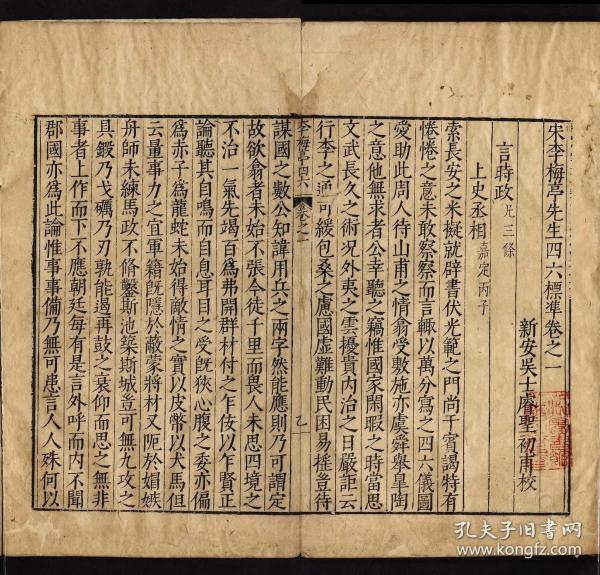 宋李梅亭先生四六標準卷之一
新安吳士睿聖初甫校
言時政凡三條
上史丞相嘉定丙子
索長安之米擬就辟書伏光範之門尚干賓謁特有
惓惓之意未敢察察而言輒以萬分寫之四六儀圖
愛助此周人待山甫之情翕受敷施亦虞舜舉皐陶
之意他無求者公幸聽之竊惟國家閑暇之時當思
文武長久之術況外夷之雲擾貴內治之日嚴詎云
行李之通可緩包桑之慮國虛難動民困易搖豈待
李梅亭四六
卷之一
謀國之數公知諱用兵之兩字然能應則乃可謂定
故欲翕者未始不張今徒千里而畏人未思四境之
不治一氣先竭百爲弗開群材付之乍佞以乍賢正
論聽其自鳴而自息耳目之受旣狹心腹之委亦偏
爲赤子爲龍蛇未始得敵情之實以皮幣以犬馬但
云量事力之宜軍籍旣隱於蔽蒙將材又阨於媢嫉
舟師未練馬政不脩鑿斯池築斯城豈可無九攻之
具鍛乃戈礪乃刃孰能遏再鼓之衰仰而思之無非
事者上作而下不應朝廷每有是言外呼而內不聞
郡國亦爲此論惟事事備乃無可患言人人殊何以
孔夫子旧书网
www.kongfz.com